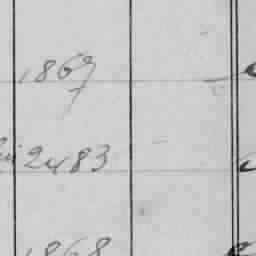 1867
2483
1868